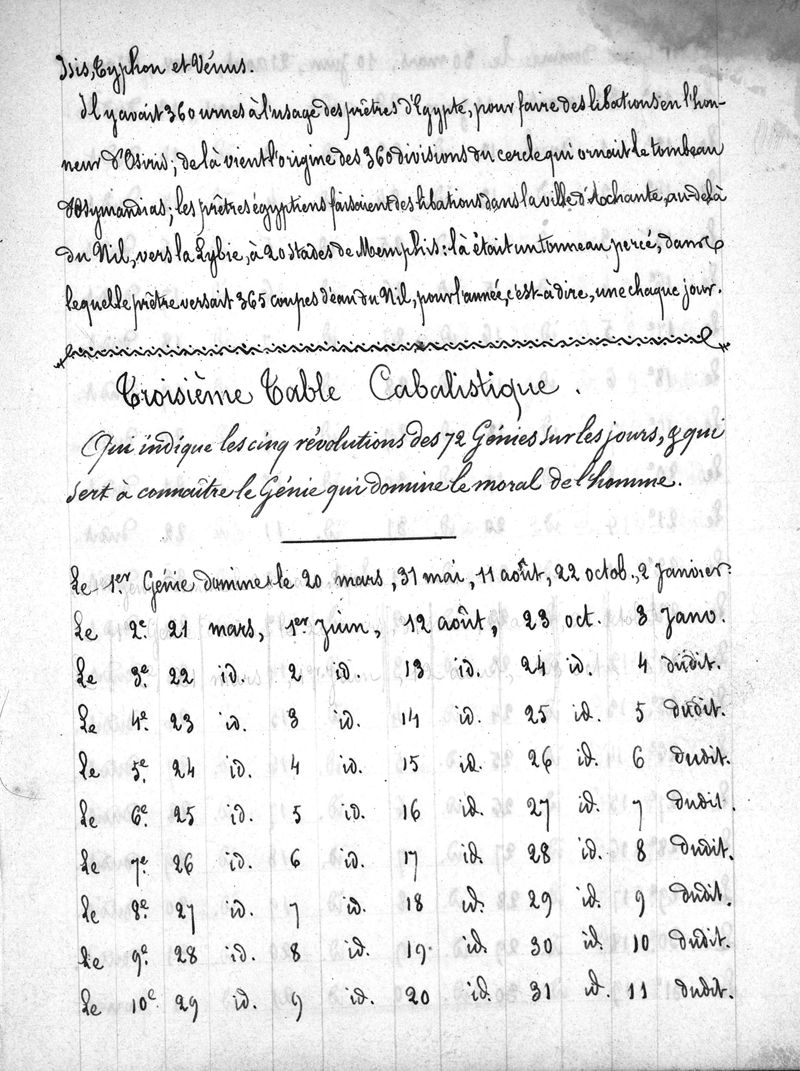 Isis, Typhon et Vénus.
Il y avait 360 urnes à l'usage des prêtres d'Egypte, pour faire des libations en l'hon-
neur d'Osiris; de là vient l'origine des 360 divisions du cercle qui ornait le tombeau
d'Osymandias; les prêtres égyptiens faisaient des libations dans la ville d'Achante, au-delà
du Nil, vers la Lybie, à 20 stades de Memphis: là était un tonneau percé, dans
lequel le prêtre versait 365 coupes d'eau du Nil, pour l'année, c'est-à dire, une chaque jour.
Troisième Table Cabalistique.
Qui indique les cinq révolutions des 72 Génies sur les jours, & qui
sert à connaître le Génie qui domine le moral de l'homme.
Le 1er Génie domine le 20 mars, 31 mai, 11 août, 22 octob., 2 Janvier.
Le 2e 21 mars, 1er Juin, 12 août, 23 oct. 3 Janv.
Le 3e 22 id. 2 id. 13 id. 24 id. 4 dudit.
Le 4e 23 id. 3 id. 14 id. 25 id. 5 dudit.
Le 5e 24 id. 4 id. 15 id. 26 id. 6 dudit.
Le 6e 25 id. 5 id. 16 id. 27 id. 7 dudit.
Le 7e 26 id. 6 id. 17 id. 28 id. 8 dudit.
Le 8e 27 id. 7 id. 18 id. 29 id. 9 dudit.
Le 9e 28 id. 8 id. 19 id. 30 id. 10 dudit.
Le 10e 29 id. 9 id. 20 id. 31 id. 11 dudit.